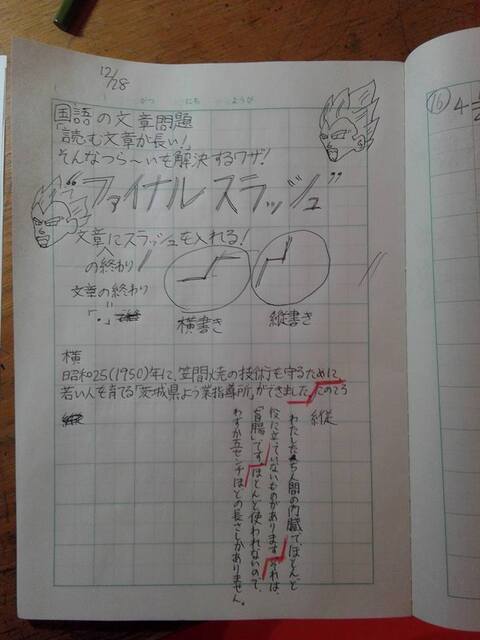 12/28
がつ にち ようび
国語の文章問題
「読む文章が長い!
そんなつら〜いも解決するワザ!
“ファイナルスラッシュ”
文章にスラッシュを入れる!
の終わり //
文章の終わり
「。」
横書き
縦書き
横
昭和25(1950)年に、笠間焼の技術を守るために、
若い人を育てる「茨城県よう業指導所」ができました。このころ
縦
わたしたち人間の内臓で、ほとんど
役に立っていないものがあります。それは、
「盲腸」です。ほとんど使われないので、
わずか五センチほどの長さしかありません。
16
4